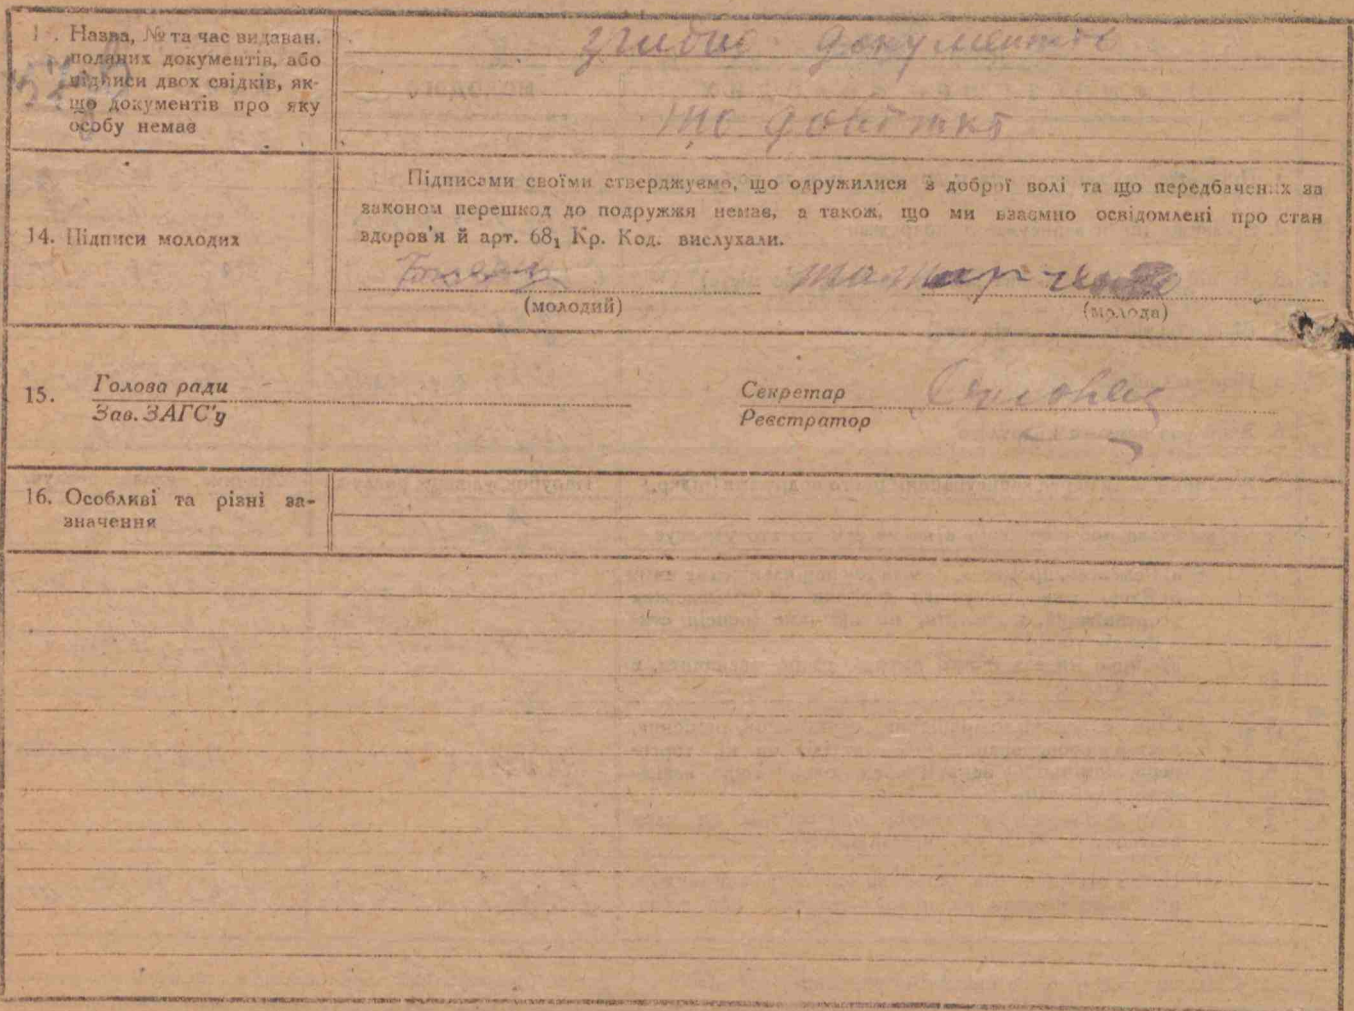 Назва, № та час видаван.
поданих документів, або
підписи двох свідків, як-
що документів про яку
особу немає
згідно документів
що довідки
14. Підписи молодих
Підписами своїми стверджуємо, що одружилися з доброї волі та що передбачених за
законом перешкод до подружжя немає, а також, що ми взаємно освідомлені про стан
здоров'я й арт. 68₁ Кр. Код. вислухали.
(молодий)
(молода)
15. Голова ради
Зав. ЗАГС'у
Секретар
Реєстратор
16. Особливі та різні за-
значення